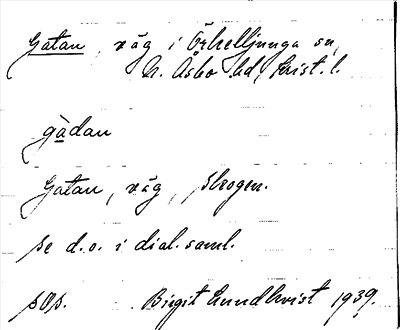 Gatan, väg i Örkelljunga sn,
N. Åsbo hd, Krist. l.
gàdan
Gatan, väg, skogen.
se d.o. i dial.saml.
Birgit Lundkvist 1939.